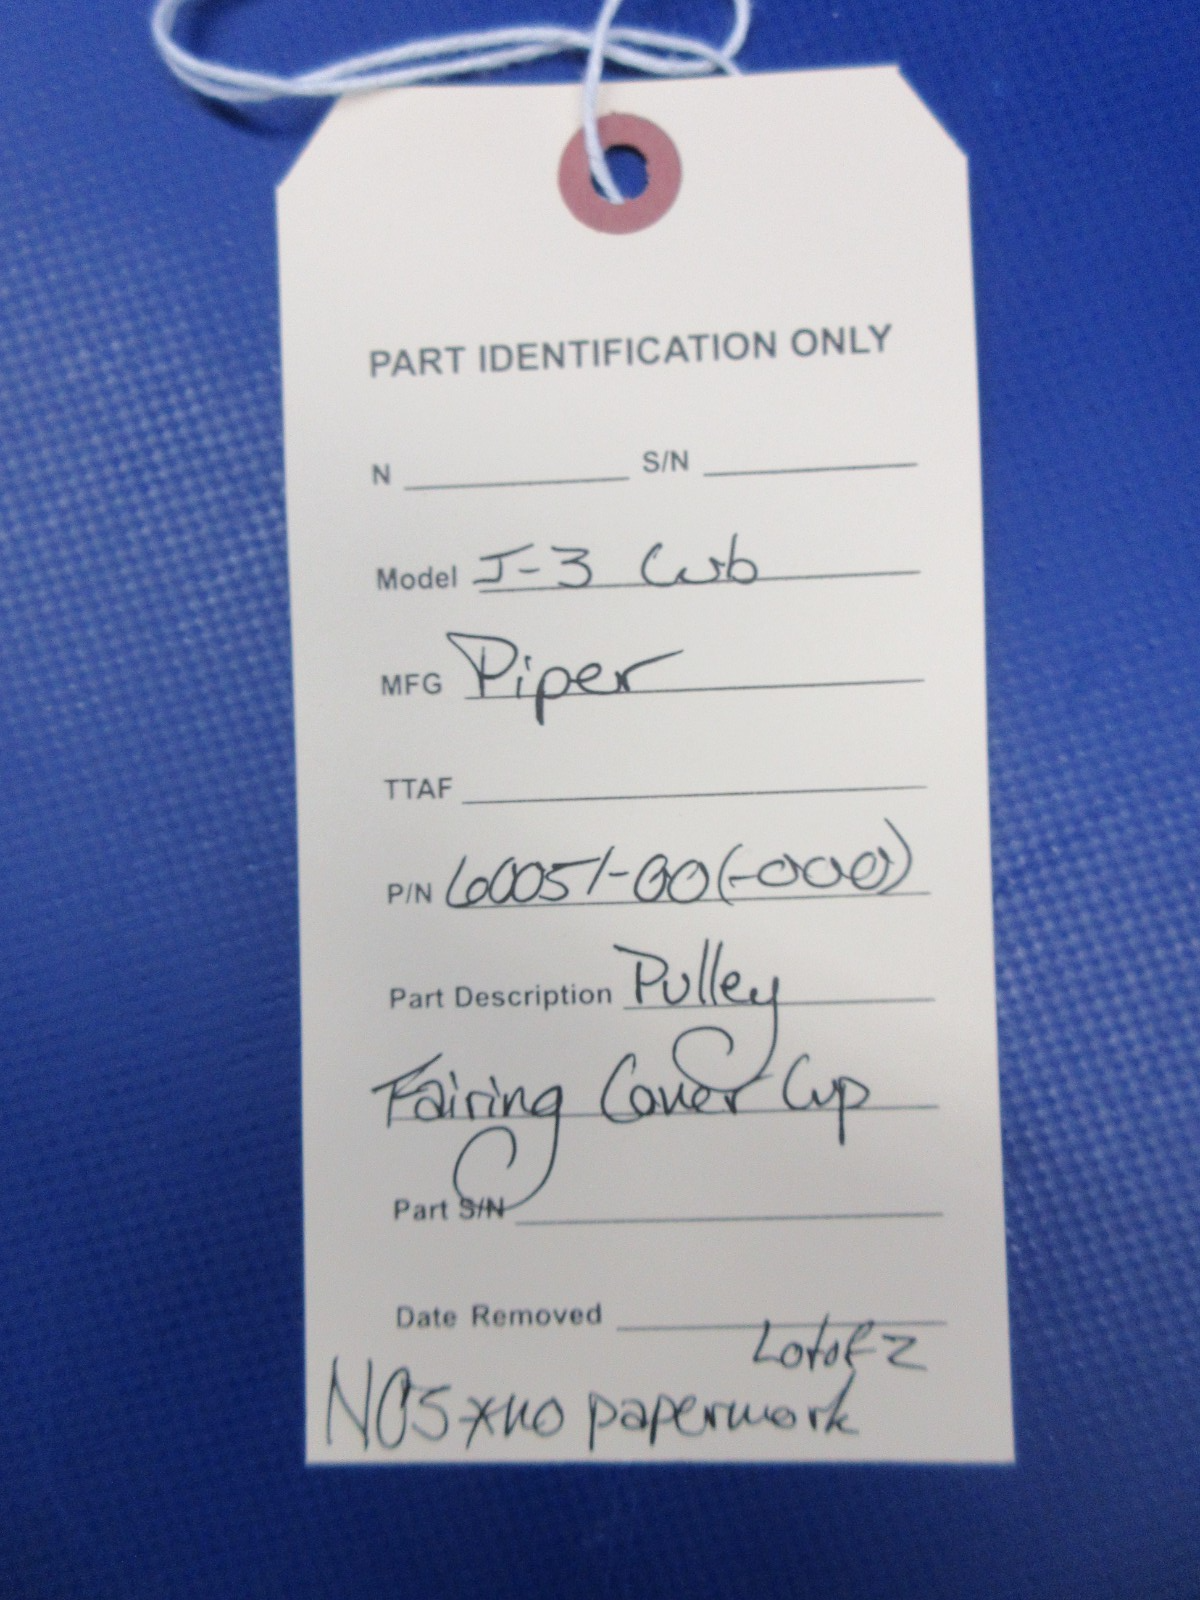 PART IDENTIFICATION ONLY
N S/N
Model J-3 Cub
MFG Piper
TTAF
P/N 60051-00(-000)
Part Description Pulley
Fairing Cover Cup
Part S/N
Date Removed
Lot of 2
NOS *no paperwork